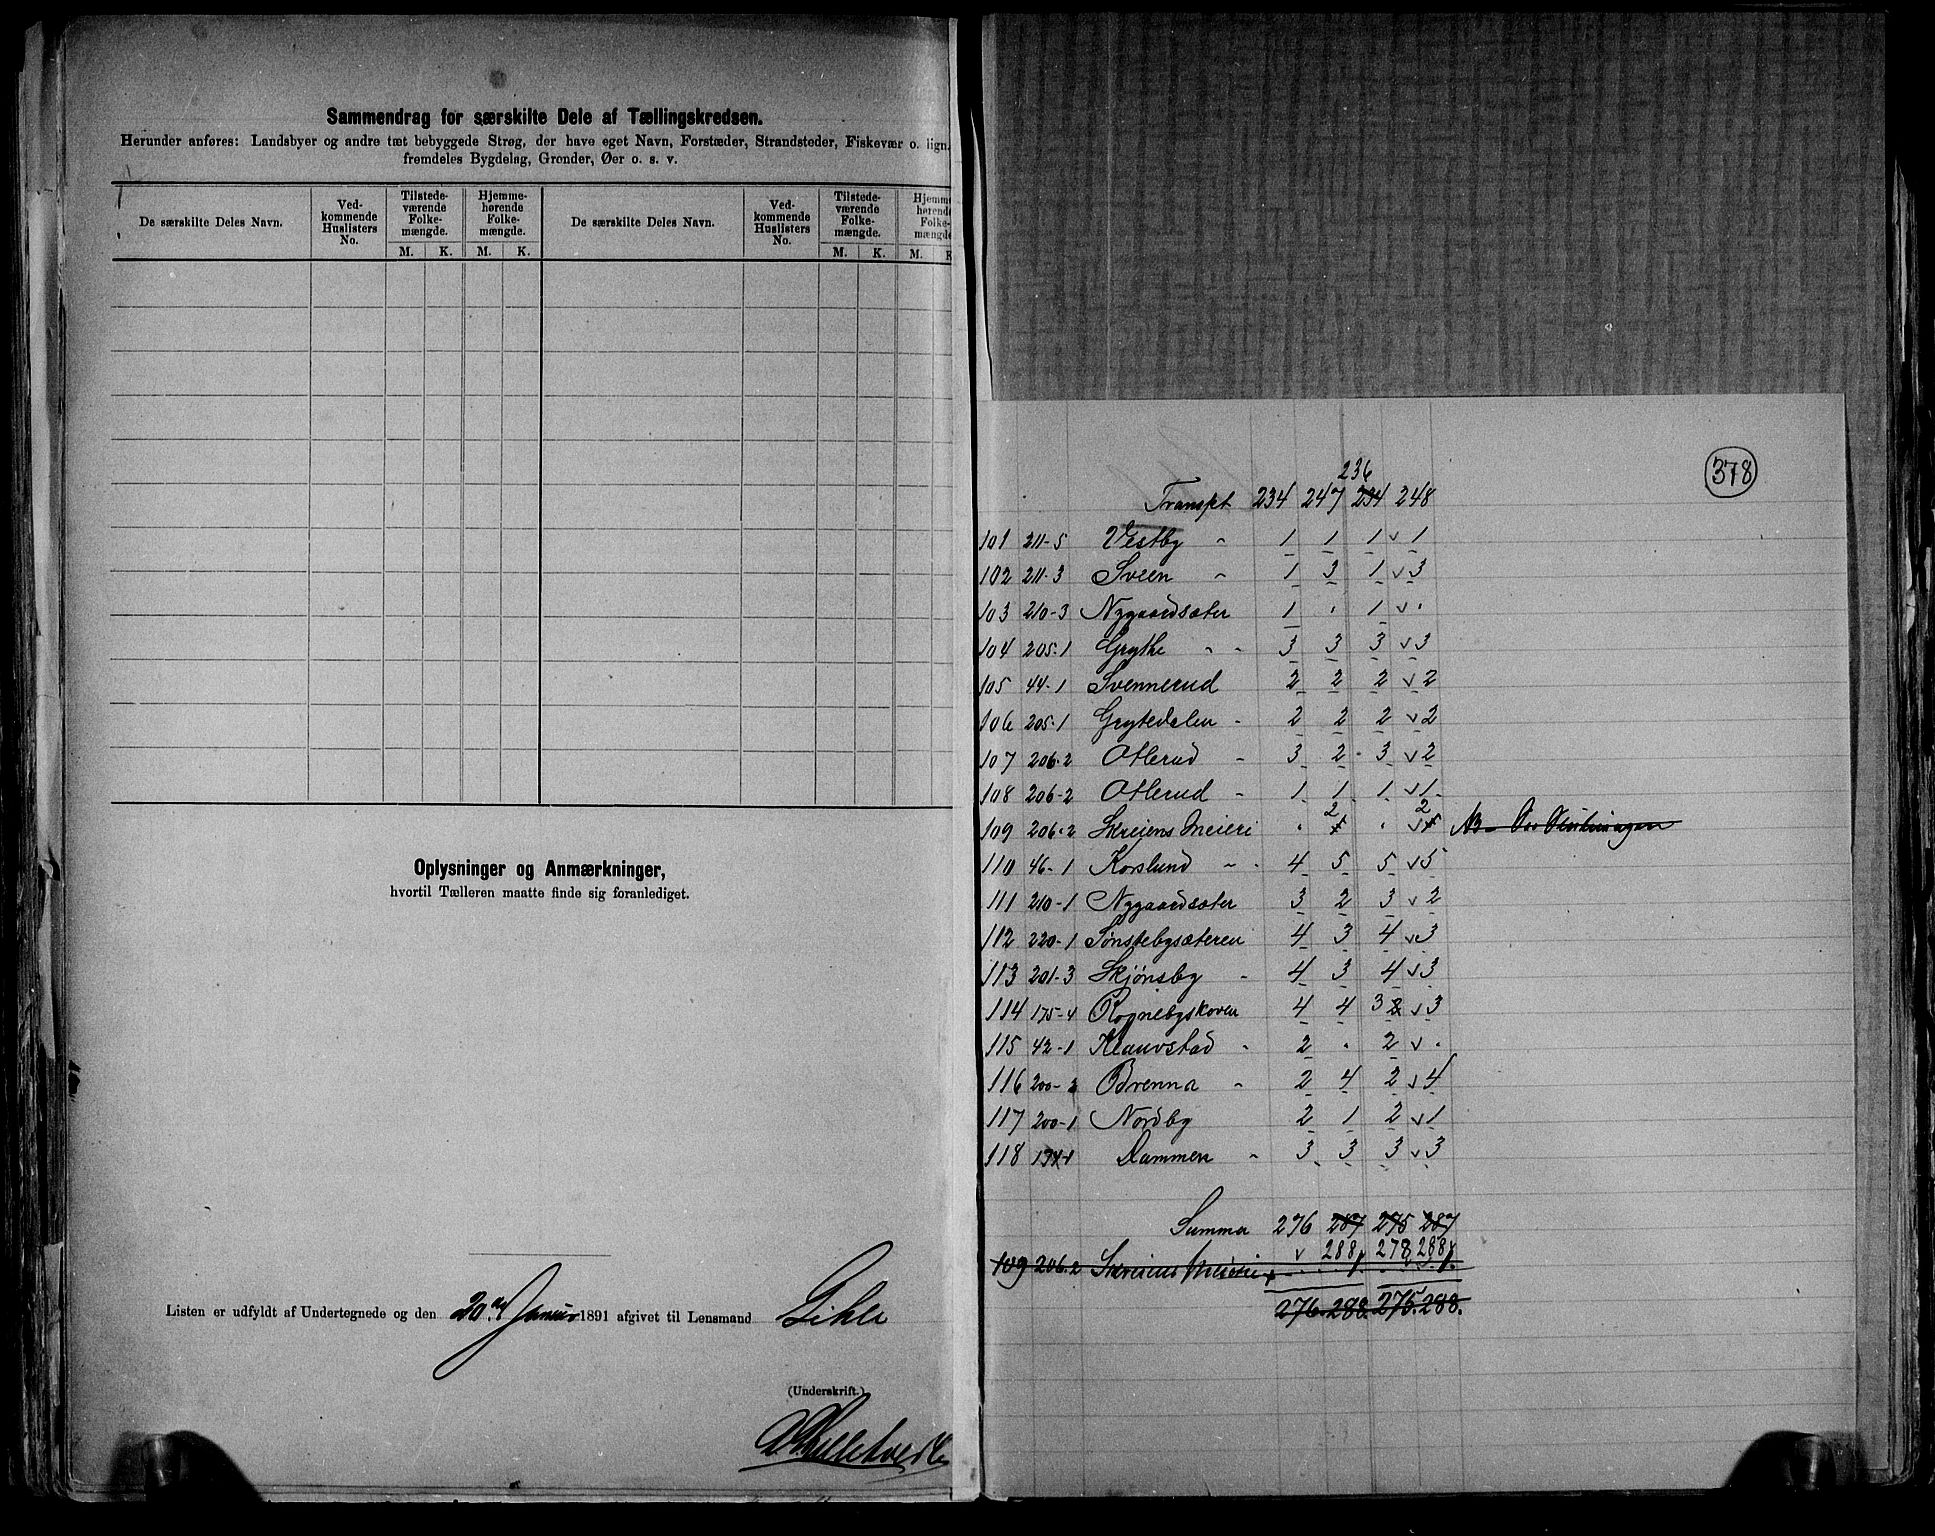 Sammendrag for særskilte Dele af Tællingskredsen.
Herunder anføres: Landsbyer og andre tæt bebyggede Strøg, der have eget Navn, Forstæder, Strandsteder, Fiskevær o. lign.
fremdeles Bygdelag, Grender, Øer o. s. v.
De særskilte Deles Navn. Ved-kommende Huslisters No. Tilstede-værende Folke-mængde. Hjemme-hørende Folke-mængde. De særskilte Deles Navn. Ved-kommende Huslisters No. Tilstede-værende Folke-mængde. Hjemme-hørende Folke-mængde
M. K. M. K. M. K. M. K
Oplysninger og Anmærkninger,
hvortil Tælleren maatte finde sig foranlediget.
Listen er udfyldt af Undertegnede og den 20de Januar 1891 afgivet til Lensmand Gihle
(Underskrift.)
378
236
Transpt 234 247 234 248
101 211-5 Vestby " 1 1 1 v 1
102 211-3 Sveen " 1 3 1 v 3
103 210-3 Nygaardsæter 1 . 1 v .
104 205-1 Grythe " " 3 3 3 v 3
105 44-1 Svennerud 2 2 2 v 2
106 205-1 Grytedalen - 2 2 2 v 2
107 206-2 Otlerud - 3 2 3 v 2
108 206-2 Otlerud - 1 1 1 v 1
2 2
109 206-2 Skreiens Meieri . . v
110 46-1 Korslund " . 4 5 5 v 5
111 210-1 Nygaardsæter 3 2 3 v 2
112 220-1 Sønstebysæteren 4 3 4 v 3
113 201-3 Skjønsby - 4 3 4 v 3
114 175-4 Rognebyskoven 4 4 3 2 v 3
115 42-1 Klauvstad - 2 . 2 v .
116 200-2 Brenna - 2 4 2 v 4
117 200-1 Nordby 2 1 2 v 1
118 Dammen - 3 3 3 v 3
Summa 276 287 275 287
v 288 278 288
109 206-2 Skreiens Meieri
276. 288. 275. 288.